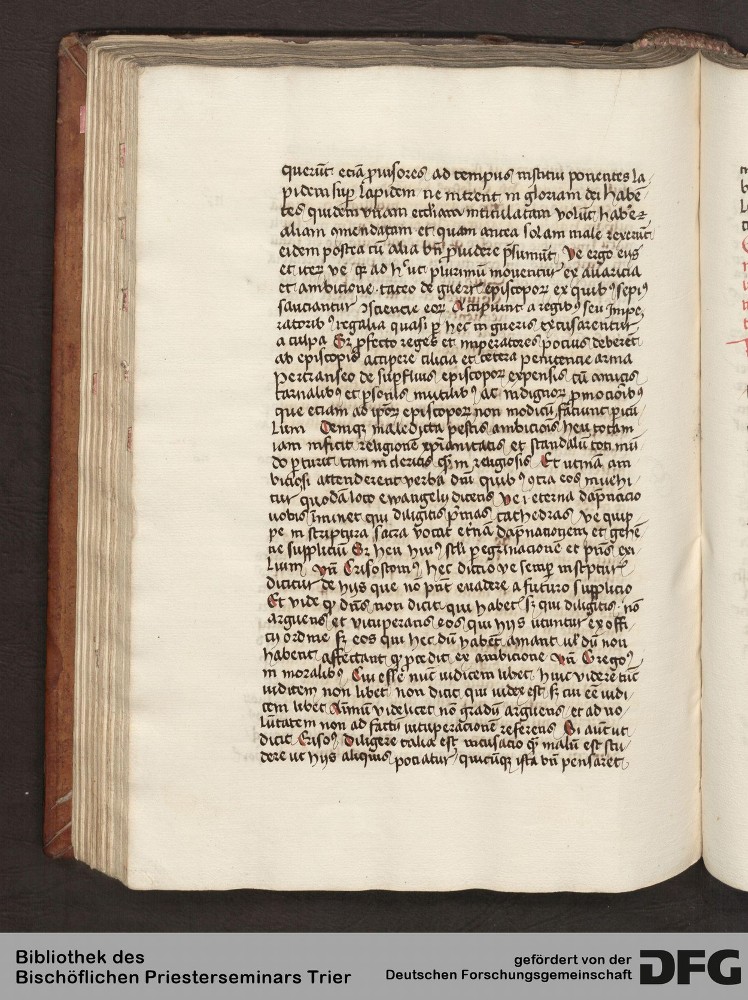 querūt etiā ꝓuisores ad tempus institui ponentes la
pidem suꝑ lapidem ne intrent in gloriam dei habē
tes quidem vnam eccliam intitulatam volūt habꝰe
aliam ꝯmendatam et quam antea solam male rexerūt
eidem postea cū alia bn̄ ꝓuidere p̄sumūt Ve ergo eis
et iterꝰ ve qꝛ ad hꝰ ut plurimū mouentur ex auaricia
et ambicione taceo de gueris episcoporꝝ ex quibꝰ sepiꝰ
sauciantur ꝯsciencie eorꝝ Accipiunt a regibꝰ seu Impe
ratoribꝰ regalia quasi ꝑ hec in gueris excusarentur
a culpa Sꝛ ꝓfecto reges et imperatores pocius deberēt
ab episcopis accipere cilicia et cetera penitencie arma
Pertranseo de suꝑfluis episcoporꝝ expensis cū amicis
carnalibꝰ et ꝑsonis inutilibꝰ ac indignorꝝ ꝓmocioībꝰ
que etiam ad ipōrꝝ episcoporꝝ non modicū faciunt ꝑicu
lum Deniqꝫ maledicta pestis ambicionis heu totam
iam inficit religionē xp̄ianitatis et scandalū toti mū
do ꝑturit tam in clericis qꝫ in religiosis Et vtinā am
biciosi attenderent verba dn̄i quibꝰ ꝯtra eos inuehi
tur quodā loco ewangelij dicens ve i eterna dāpnacio
vobis īminet qui diligitis pⁱmas cathedras Ve quip
pe in scriptura sacra vocat et̄nā dāpnationem et gehē
ne suppliciū Sꝛ heu hiuꝰ scl̄i ꝑegrinacione et pn̄s exi
lium vn̄ Crisostomꝰ hec dictio ve semꝑ in scptuꝛ
dicitur de hijs que nō pn̄t euadere a futuro supplicio
Et vide qꝫ dn̄s non dicit qui habetꝭ sꝫ qui diligitis nō
arguens et vituperans eos qui hijs vtuntur ex offi
cij ordine sꝫ eos qui hec dū habēt amant ul̄ dū non
habent affectant qꝫ ꝓcedit ex ambicione vn̄ Gregoꝰ
in moralibꝰ Cui esse nūc iudicem libet huic videre tūc
iudicem non libet non dicit qui iudex est sꝫ cui eē iudi
cem libet Animū videlicet nō gradū arguens et ad vo
lūtatem non ad factū vituperacionē referens Si aūt ut
dicit Crisoꝰ Diligere talia est incusacio qꝫ malū est stu
dere ut hijs aliquis pociatur quicūqꝫ ista bn̄ pensaret
Bibliothek des
Bischöflichen Priesterseminars Trier
gefördert von der
Deutschen Forschungsgemeinschaft
DFG